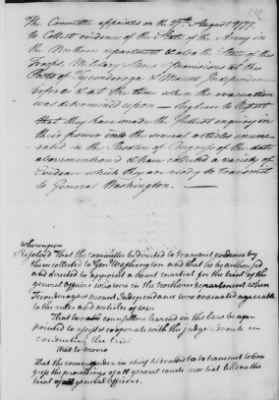 The Committee appointed on the 27th August 1777
to Collect evidence of the State of the Army in
the Northern department & also the State of the
Troops, Military Stores & provisions at the
Posts of Ticonderoga & Mount Independence
before & at the time when the evacuation
was determined upon — beg leave to Report
that they have made the fullest enquiry in
their power into the several articles enume-
rated in the Resolve of Congress of the date
abovementioned & have collected a variety of
Evidence which they are ready to transmit
to General Washington.
Whereupon
Resolved That the committee be directed to transmit evidence by
them collected to Gen Washington and that he be authorised
and directed to appoint a court martial for the trial by the
general Officers who were in the Northern department when
Ticonderoga & Mount Independence were evacuated agreeable
to the rules and articles of war
That two counsellors learned in the law be ap-
pointed to assist & cooperate with the judge advocate in
conducting the trial
That the commander in chief be to transmit to Con-
gress the proceedings of general courts martial on the
trial of general Officers.